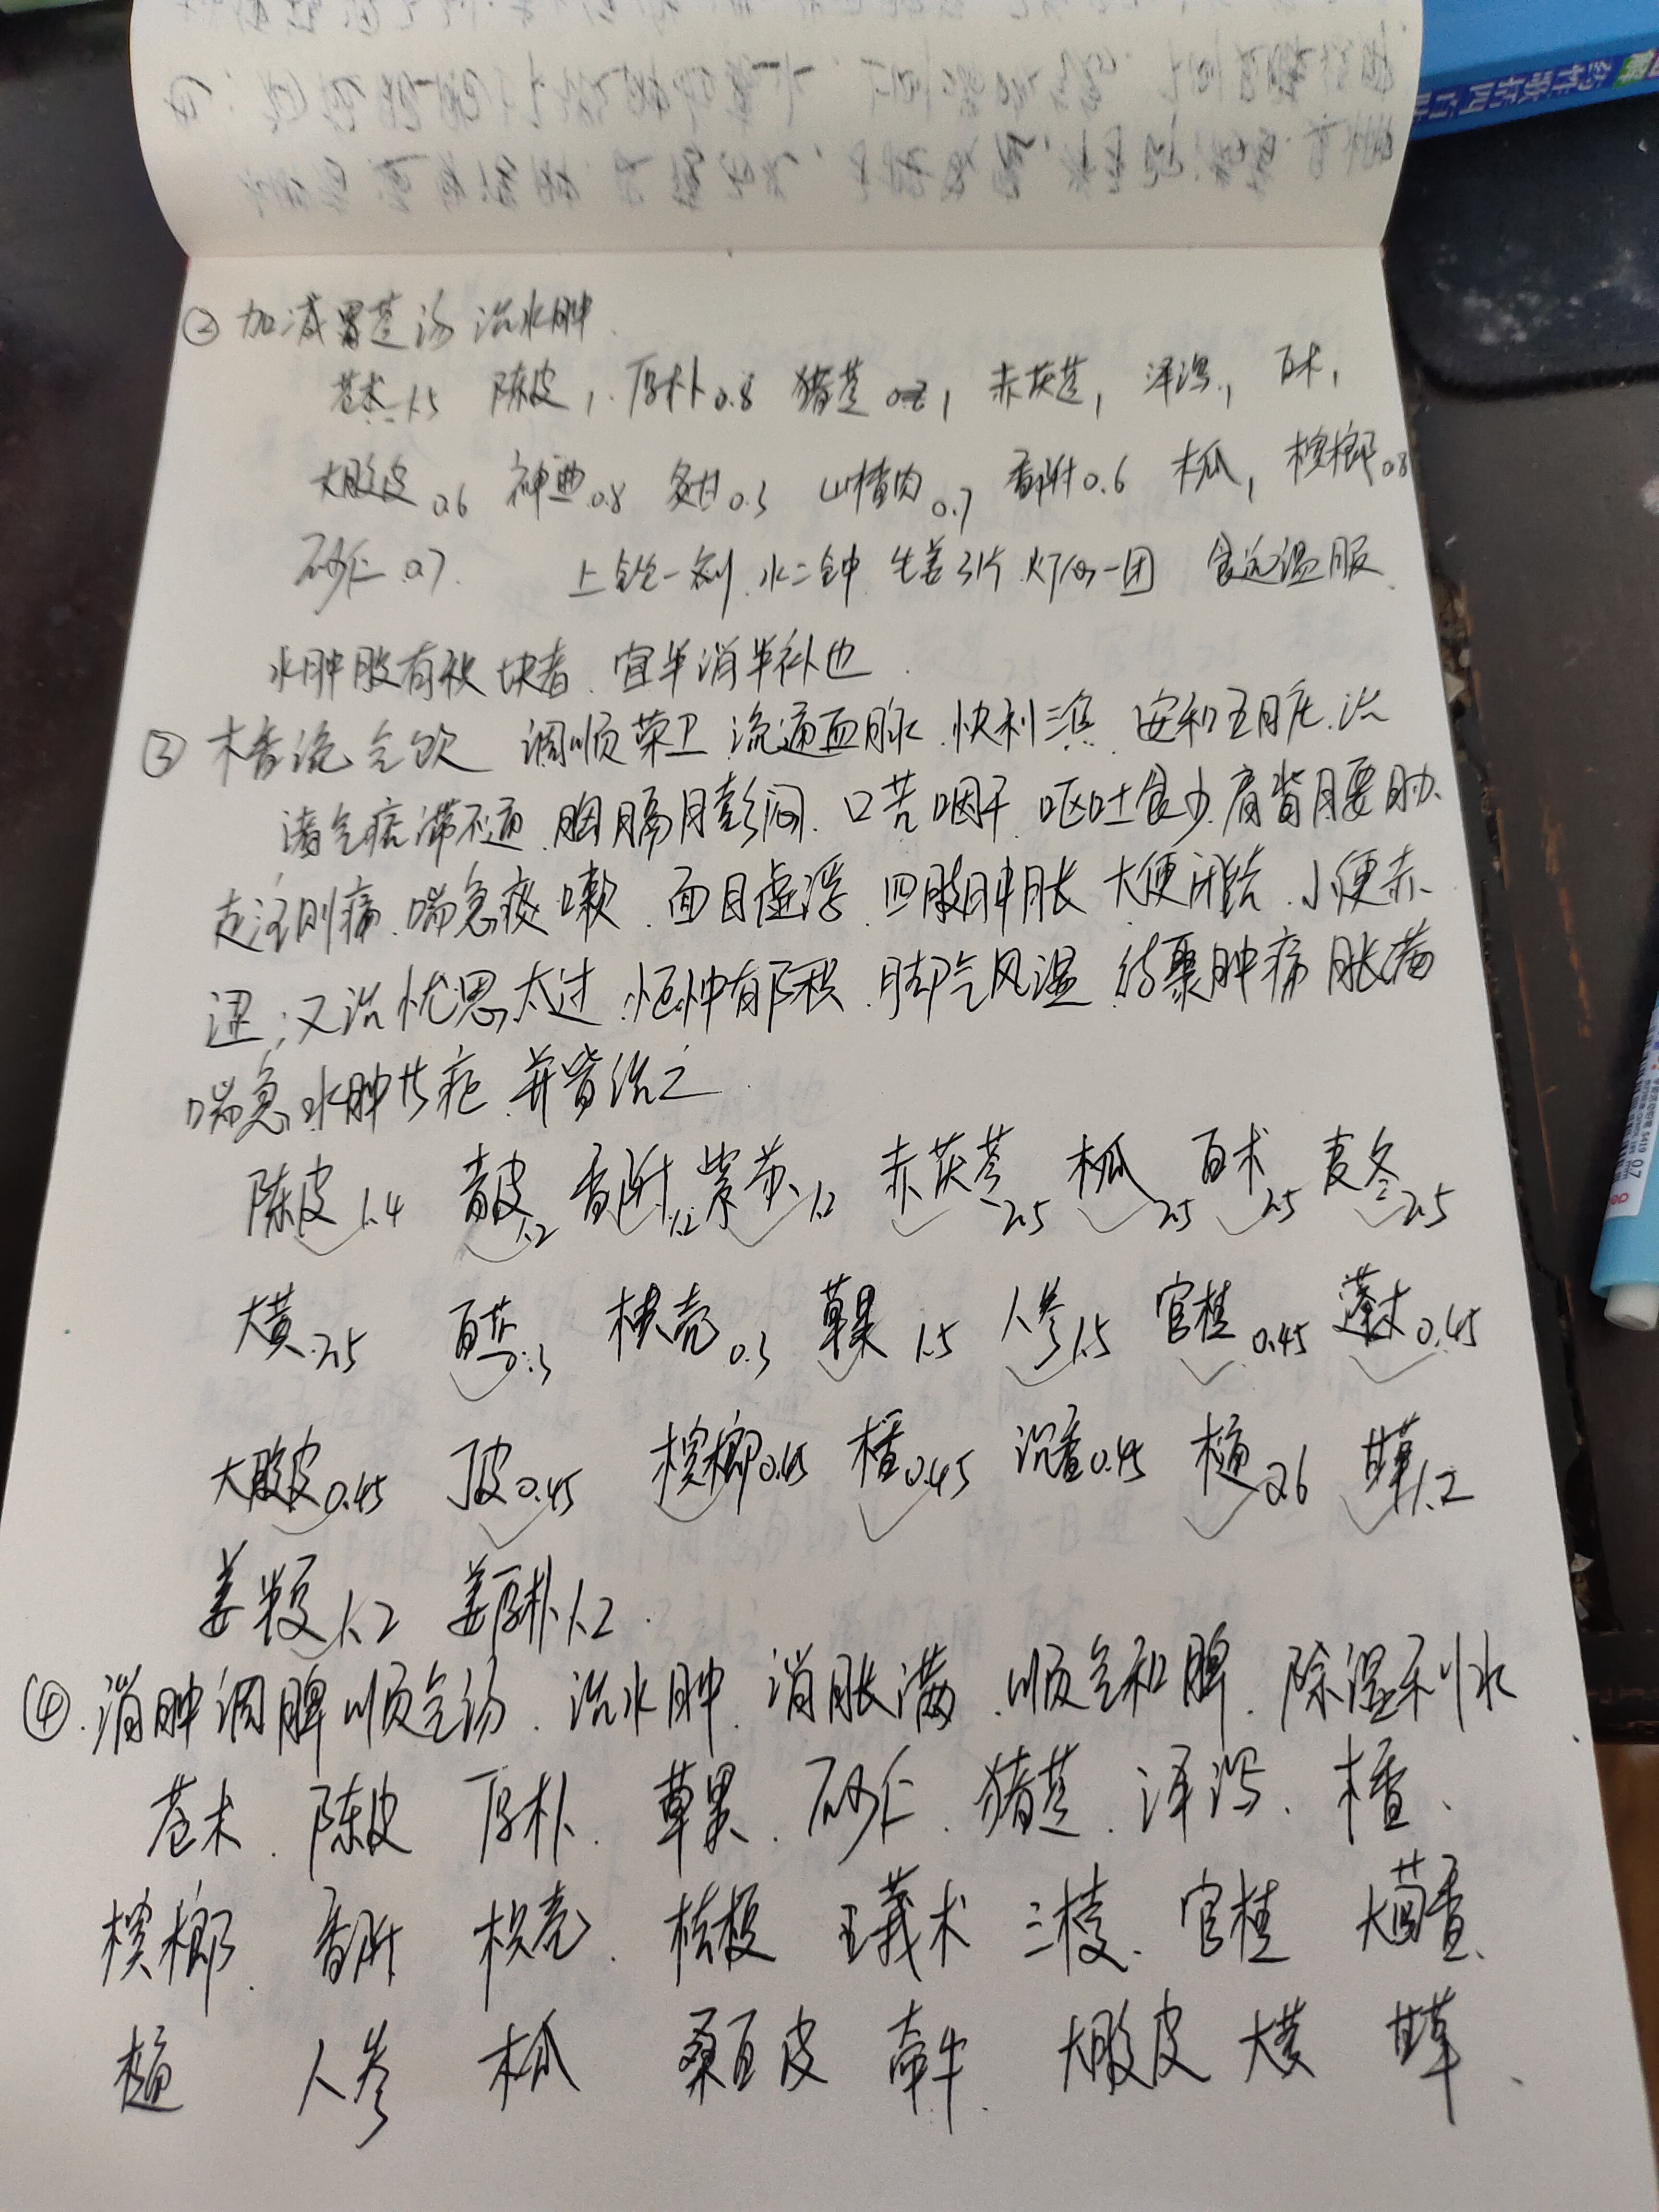 ② 加减胃苓汤 治水肿.
苍术1.5 陈皮1. 厚朴0.8 猪苓1 赤茯苓1 泽泻1 白术1
大腹皮0.6 神曲0.8 炙甘0.3 山楂肉0.7 香附0.6 木瓜1 槟榔0.8
砂仁0.7. 上锉一剂.水二钟 生姜3片.灯心一团 食远温服.
水肿腹有积块者.宜半消半补也.
③ 木香流气饮 调顺荣卫.流通血脉.快利三焦.安和五脏.治
诸气痞滞不通.胸膈膨闷.口苦咽干.呕吐食少.肩背腰胁
走注刺痛.喘急痰嗽.面目虚浮.四肢肿胀 大便闭结.小便赤
涩;又治忧思太过.怔忡郁积.脚气风湿.结聚肿痛 胀满
喘急.水肿 并皆治之.
陈皮1.4 青皮1.2 香附1.2 紫苏1.2 赤茯苓2.5 木瓜2.5 白术2.5 麦冬2.5
大黄2.5 白芷0.3 枳壳0.3 草果1.5 人参1.5 官桂0.45 蓬术0.45
大腹皮0.45 丁皮0.45 槟榔0.45 木香0.45 沉香0.45 木通0.6 甘草1.2
姜半夏1.2 姜厚朴1.2.
④.消肿调脾顺气汤.治水肿.消胀满.顺气和脾.除湿利水
苍术.陈皮 厚朴.草果.砂仁.猪苓.泽泻、木香、
槟榔.香附 枳壳.桔梗 莪术 三棱.官桂 大茴香、
木通 人参 木瓜 桑白皮 牵牛.大腹皮 大黄 甘草、